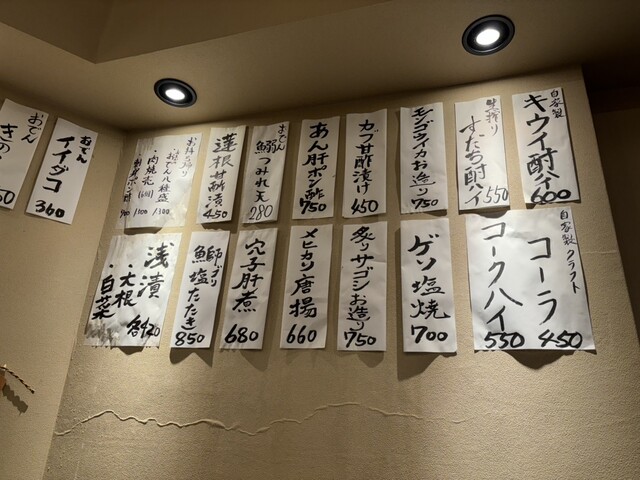 自家製
キウイ酎ハイ
600
生搾り
すだち酎ハイ
550
モンゴウイカお造り
750
カブ甘酢漬け
450
あん肝ポン酢
750
おでん
鰯つみれ天
280
蓮根甘酢漬
450
お持ち帰り
・おでん八種盛
・肉焼売(6コ)
自家製
クラフト
コーラ
450
コークハイ
550
ゲソ塩焼
700
炙りサゴシお造り
750
メヒカリ唐揚
660
穴子肝煮
680
鰤ブリ
塩たたき
850
浅漬
・大根
・白菜
各420
おでん
イイダコ
360
おでん
きの
50